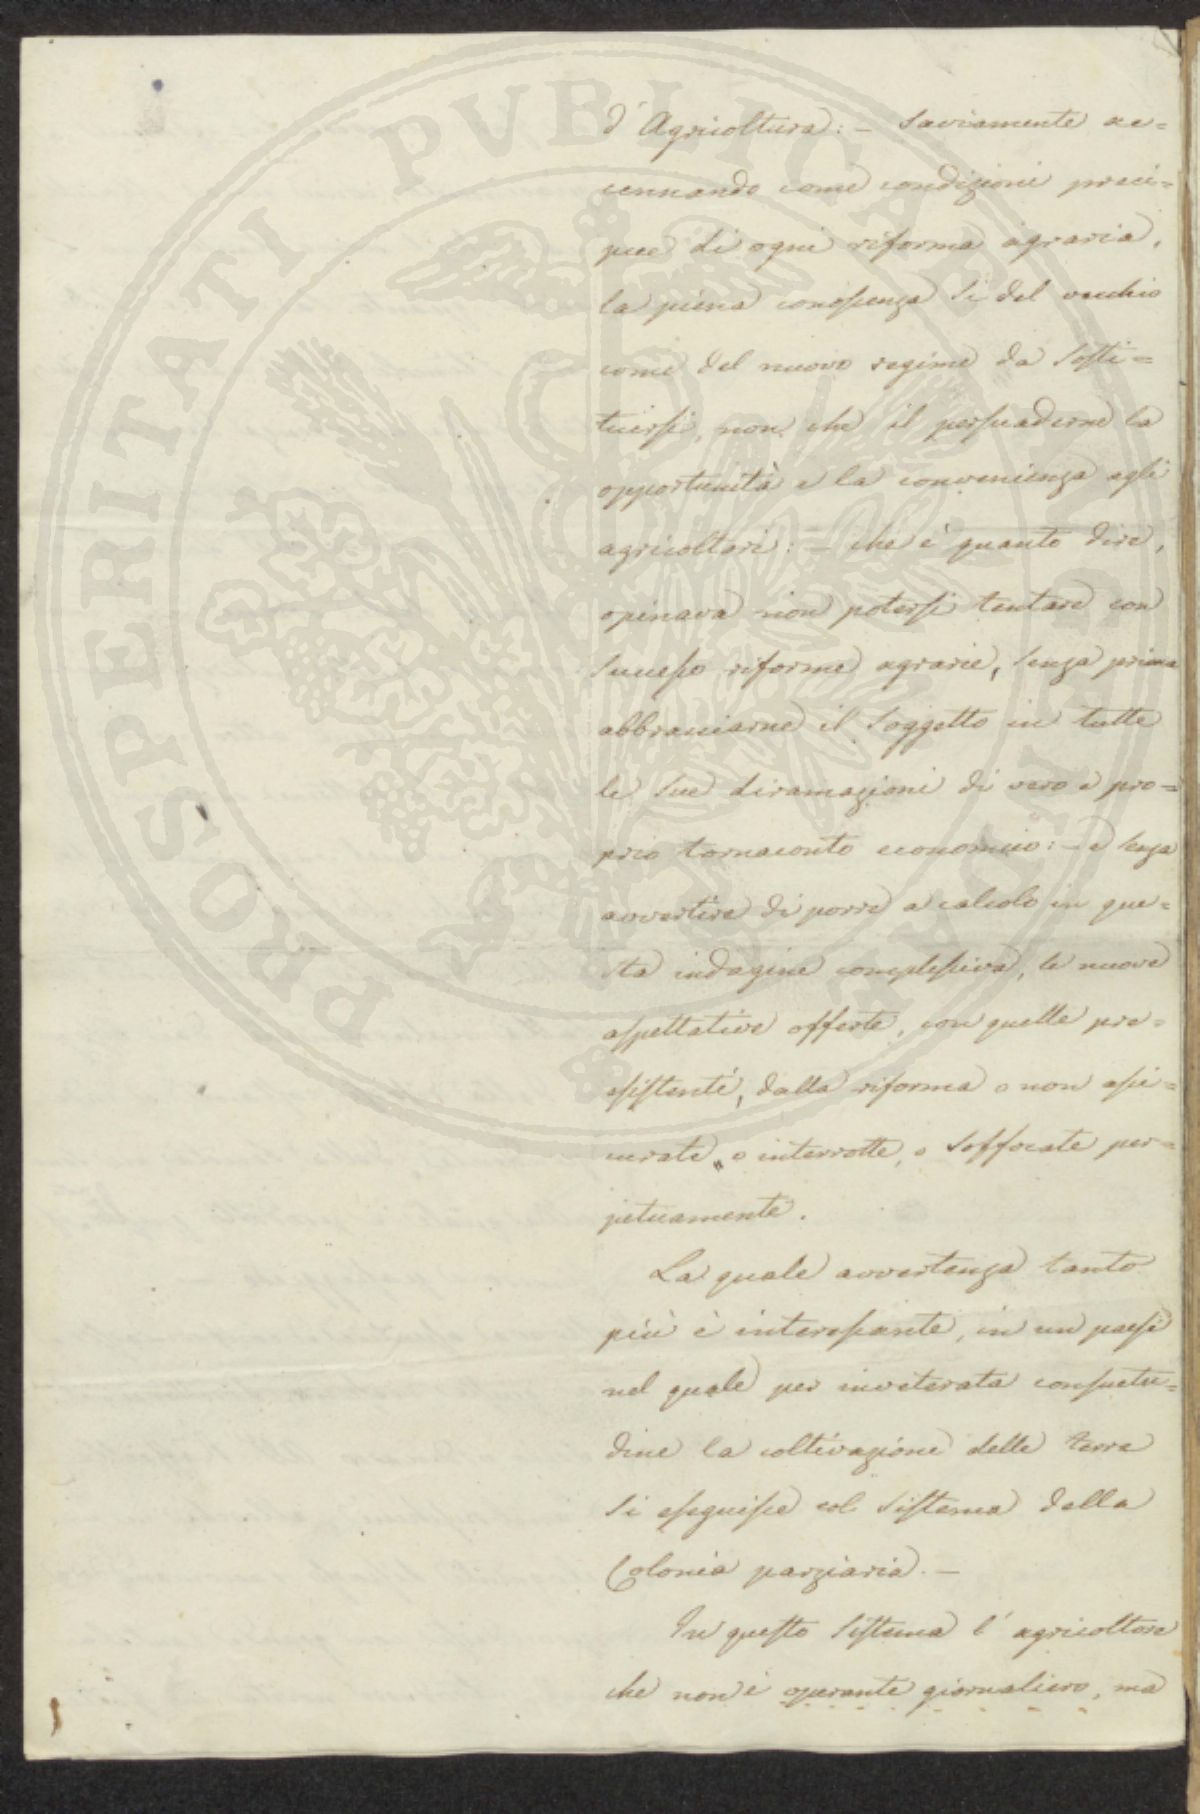 d'Agricoltura: – saviamente ac=
cennando come condizioni preci=
pue di ogni riforma agraria,
la piena conoscenza sì del vecchio
come del nuovo regime da sosti=
tuirsi, non che il persuaderne la
opportunità e la convenienza agli
agricoltori: – che è quanto dire,
opinava non potersi tentare con
successo riforme agrarie, senza prima
abbracciarne il soggetto in tutte
le sue diramazioni di vero e pro=
prio tornaconto economico: – e senza
avvertire di porre a calcolo in que=
sta indagine complessiva, le nuove
aspettative offerte, con quelle pre=
esistenti, dalla riforma o non assi=
curate, o interrotte, o soffocate per=
petuamente.
La quale avvertenza tanto
più è interessante, in un paese
nel quale per inveterata consuetu=
dine la coltivazione delle terre
si eseguisce col sistema della
Colonia parziaria. –
In questo sistema l'agricoltore
che non è operante giornaliero, ma
PROSPERITATI PVBLICAE AVGENDAE